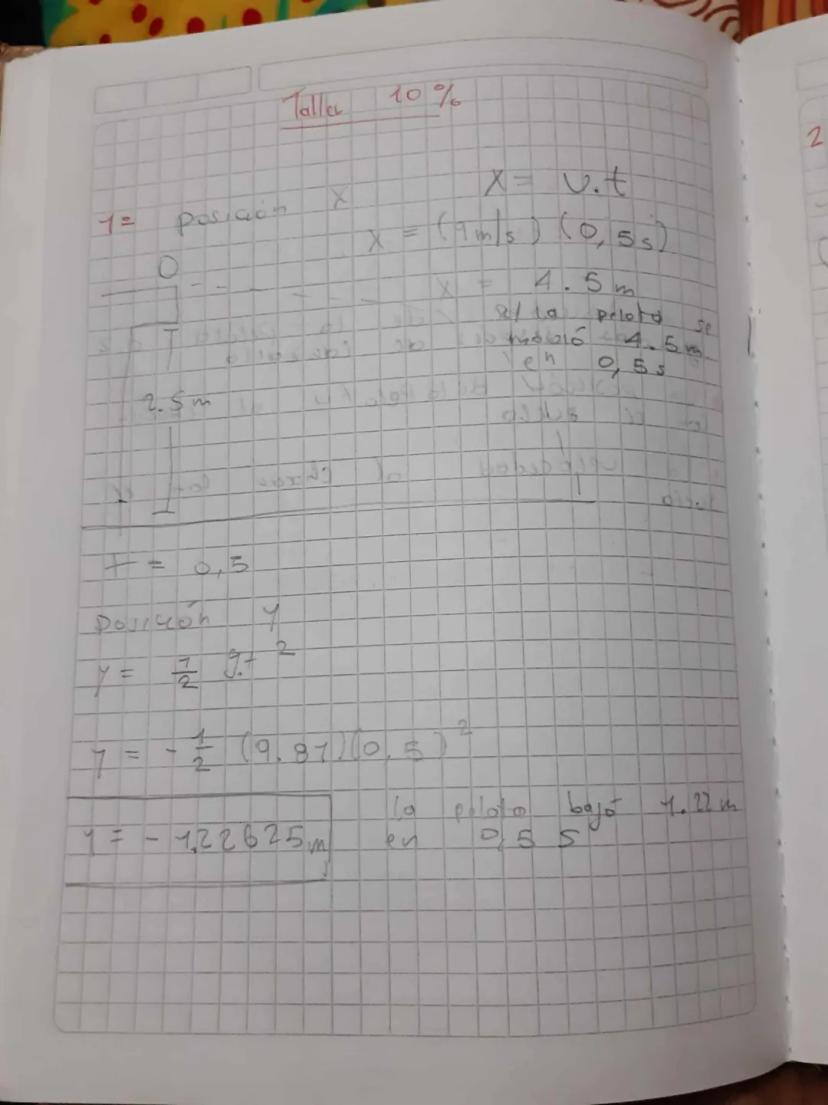 Taller 10%
1= posición X
X = v.t
X = (9m/s) (0,5s)
X = 4.5m
R/ la pelota se
movió 4.5m
en 0,5s
2.5m
T = 0,5
posición Y
y = 1/2 g.t²
y = - 1/2 (9.81)(0,5)²
y = - 1,22625m
la pelota bajó 1.22m
en 0,5 s
2